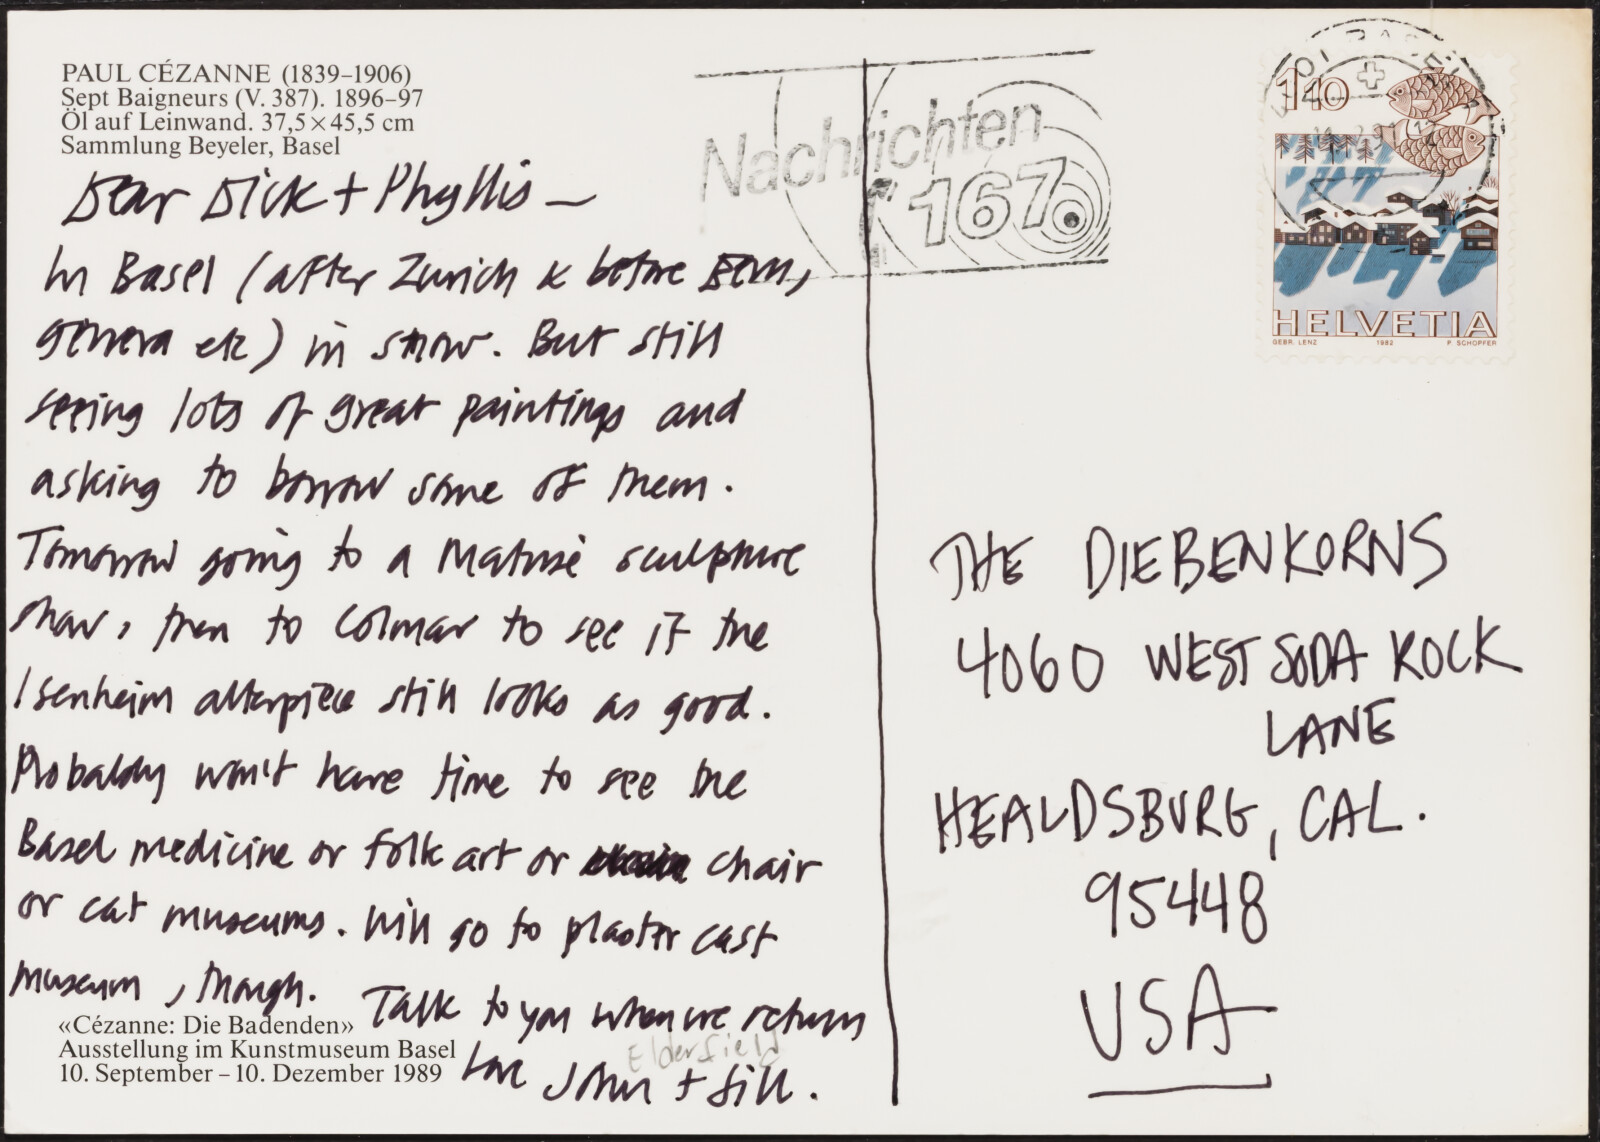 PAUL CÉZANNE (1839–1906)
Sept Baigneurs (V. 387). 1896–97
Öl auf Leinwand. 37,5 × 45,5 cm
Sammlung Beyeler, Basel
Dear Dick + Phyllis —
In Basel (after Zurich & before Bern,
Geneva etc) in snow. But still
seeing lots of great paintings and
asking to borrow some of them.
Tomorrow going to a Matisse sculpture
show, then to Colmar to see if the
Isenheim alterpiece still looks as good.
Probably won't have time to see the
Basel medicine or folk art or chair
or cat museums. Will go to plaster cast
museum, though. Talk to you when we return
Love John + Jill.
Elderfield
«Cézanne: Die Badenden»
Ausstellung im Kunstmuseum Basel
10. September – 10. Dezember 1989
Nachrichten
167
BASEL
1 40
HELVETIA
GEBR. LENZ 1982 P. SCHOPFER
THE DIEBENKORNS
4060 WEST SODA ROCK
LANE
HEALDSBURG, CAL.
95448
USA